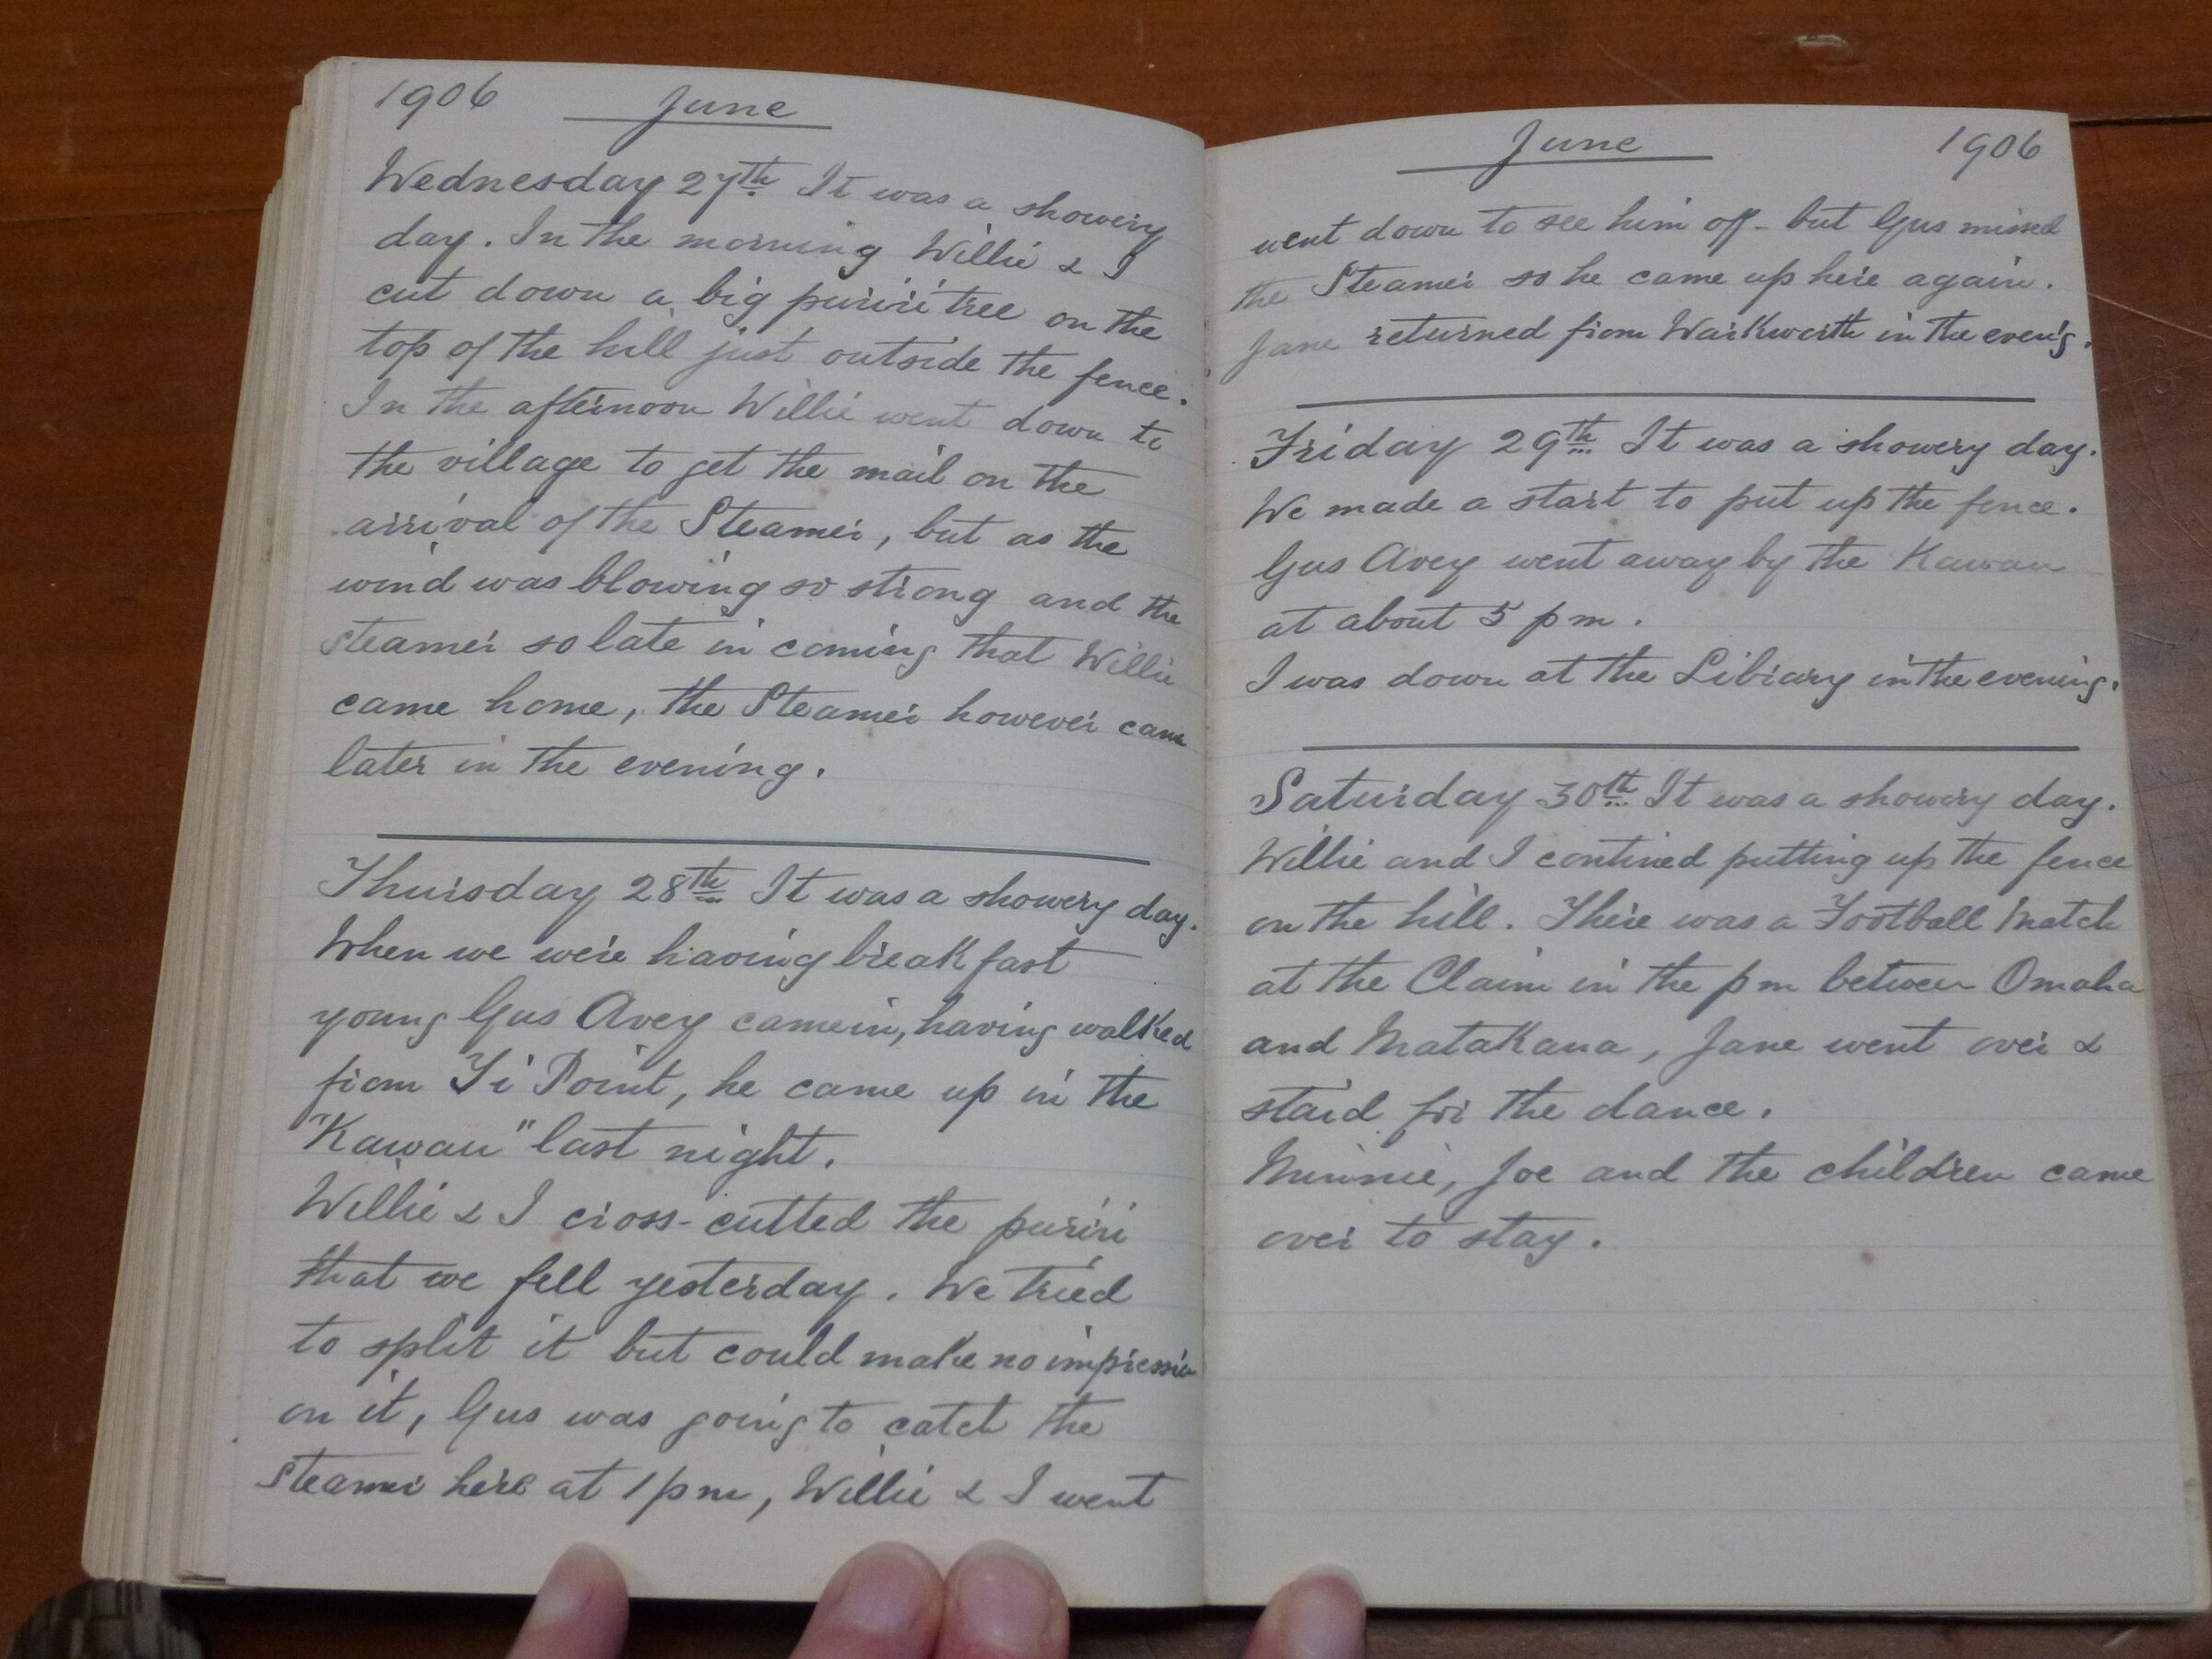 1906 June
Wednesday 27th It was a showery
day. In the morning Willie & I
cut down a big puriri tree on the
top of the hill just outside the fence.
In the afternoon Willie went down to
the village to get the mail on the
arrival of the Steamer, but as the
wind was blowing so strong and the
steamer so late in coming that Willie
came home, the Steamer however came
later in the evening.
Thursday 28th It was a showery day.
When we were having breakfast
young Gus Avey came in, having walked
from Ti Point, he came up in the
"Kawau" last night.
Willie & I cross-cutted the puriri
that we fell yesterday. We tried
to split it but could make no impression
on it, Gus was going to catch the
steamer here at 1 pm, Willie & I went
June 1906
went down to see him off - but Gus missed
the Steamer so he came up here again.
Jane returned from Warkworth in the even'g.
Friday 29th It was a showery day.
We made a start to put up the fence.
Gus Avey went away by the Kawau
at about 5 pm.
I was down at the Library in the evening.
Saturday 30th It was a showery day.
Willie and I contined putting up the fence
on the hill. There was a Football Match
at the Claim in the pm between Omaha
and Matakana, Jane went over &
staid for the dance.
Minnie, Joe and the children came
over to stay.